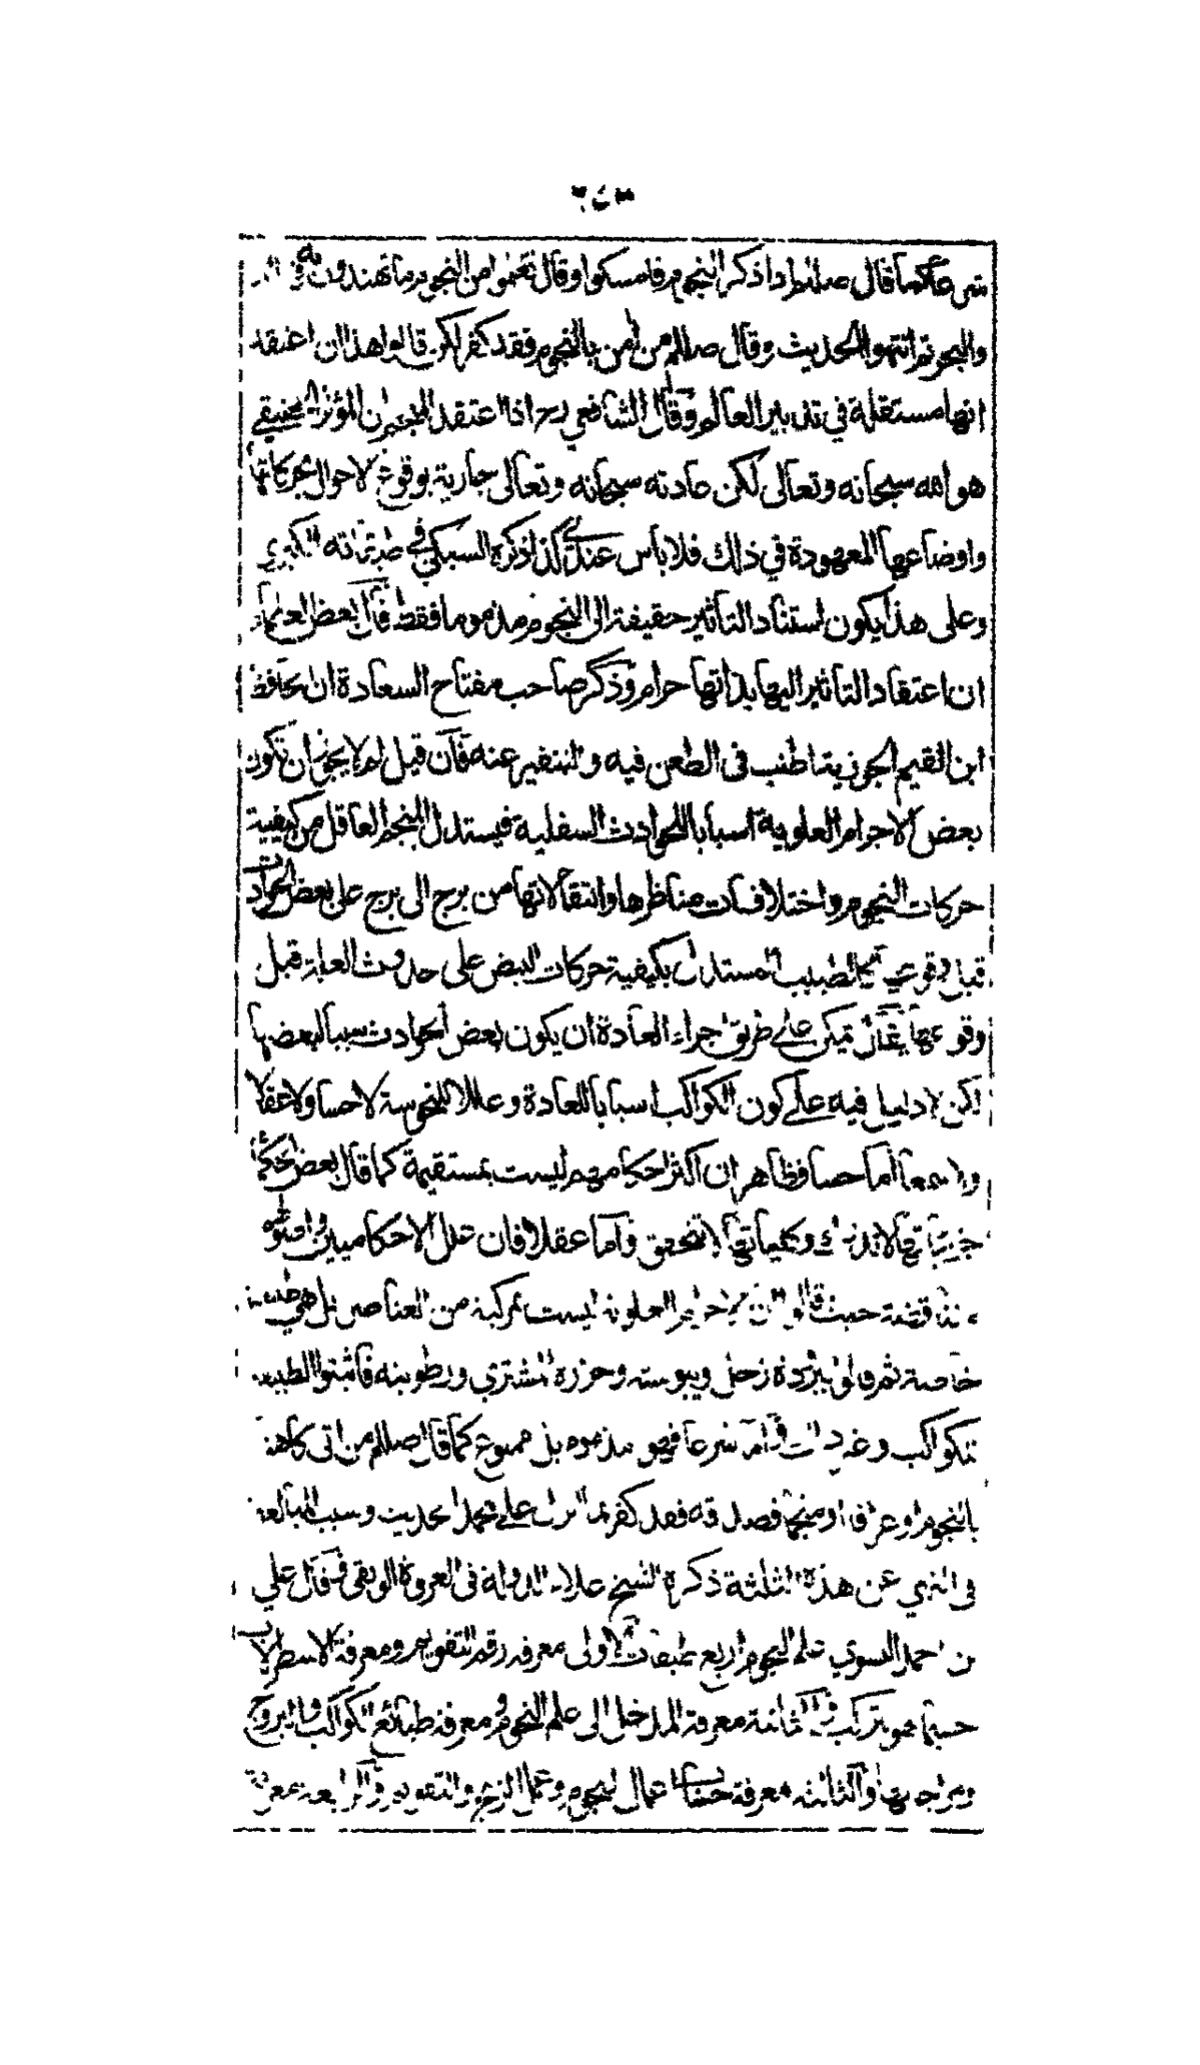 ٢٤٣
شرعا كما قال صللم اذا ذكر النجوم فامسكوا وقال تعلموا من النجوم ما تهتدون به في البر
والبحر ثم انتهوا الحديث وقال صللم من امن بالنجوم فقد كفر لكن قالوا هذا ان اعتقد
انها مستقلة في تدبير العالم وقال الشافعي رح اذا اعتقد المنجم ان المؤثر الحقيقي
هو الله سبحانه وتعالى لكن عادته سبحانه وتعالى جارية بوقوع الاحوال بحركاتها
واوضاعها المعهودة في ذلك فلا باس عندي كذا ذكره السبكي في طبقاته الكبرى
وعلى هذا يكون استناد التاثير حقيقة الى النجوم مذموما فقط قال بعض العلماء
ان اعتقاد التاثير اليها بذاتها حرام وذكر صاحب مفتاح السعادة ان الحافظ
ابن القيم الجوزية اطنب في الطعن فيه والتنفير عنه فان قيل لم لا يجوز ان تكون
بعض الاجرام العلوية اسبابا للحوادث السفلية فيستدل المنجم العاقل من كيفية
حركات النجوم واختلافات مناظرها وانتقالاتها من برج الى برج على بعض الحوادث
قبل وقوعها كالطبيب المستدل بكيفية حركات النبض على حدوث العلة قبل
وقوعها يقال يمكن على طريق اجراء العادة ان يكون بعض الحوادث سببا لبعضها
لكن لا دليل فيه على كون الكواكب اسبابا للعادة وعللا للنحوسة لا حسا ولا عقلا
ولا سمعا اما حسا فظاهر ان اكثر احكامهم ليست بمستقيمة كما قال بعض الحكما
جزيياتها لا تدرك وكلياتها لا تتحقق واما عقلا فان علل الاحكاميين واصولهم
متناقضة حيث قالوا ان الاجرام العلوية ليست بمركبة من العناصر بل هي طبيعة
خاصة ثم قالوا ببرودة زحل ويبوسته وحرارة المشتري ورطوبته فاثبتوا الطبيعة
للكواكب وغير ذلك واما شرعا فهو مذموم بل ممنوع كما قال صللم من اتى كاهنا
بالنجوم او عرافا او منجما فصدقه فقد كفر بما انزل على محمد الحديث وسبب المبالغة
في النهي عن هذه الثلثة ذكره الشيخ علاء الدولة في العروة الوثقى قال علي
بن احمد النسوي علم النجوم اربع طبقات الاولى معرفة رقم التقويم ومعرفة الاسطرلاب
حسبما هو يتركب والثانية معرفة المدخل الى علم النجوم ومعرفة طبائع الكواكب والبروج
ومزاجها والثالثة معرفة حساب اعمال النجوم وعمل الزيج والتقويم والرابعة معرفة